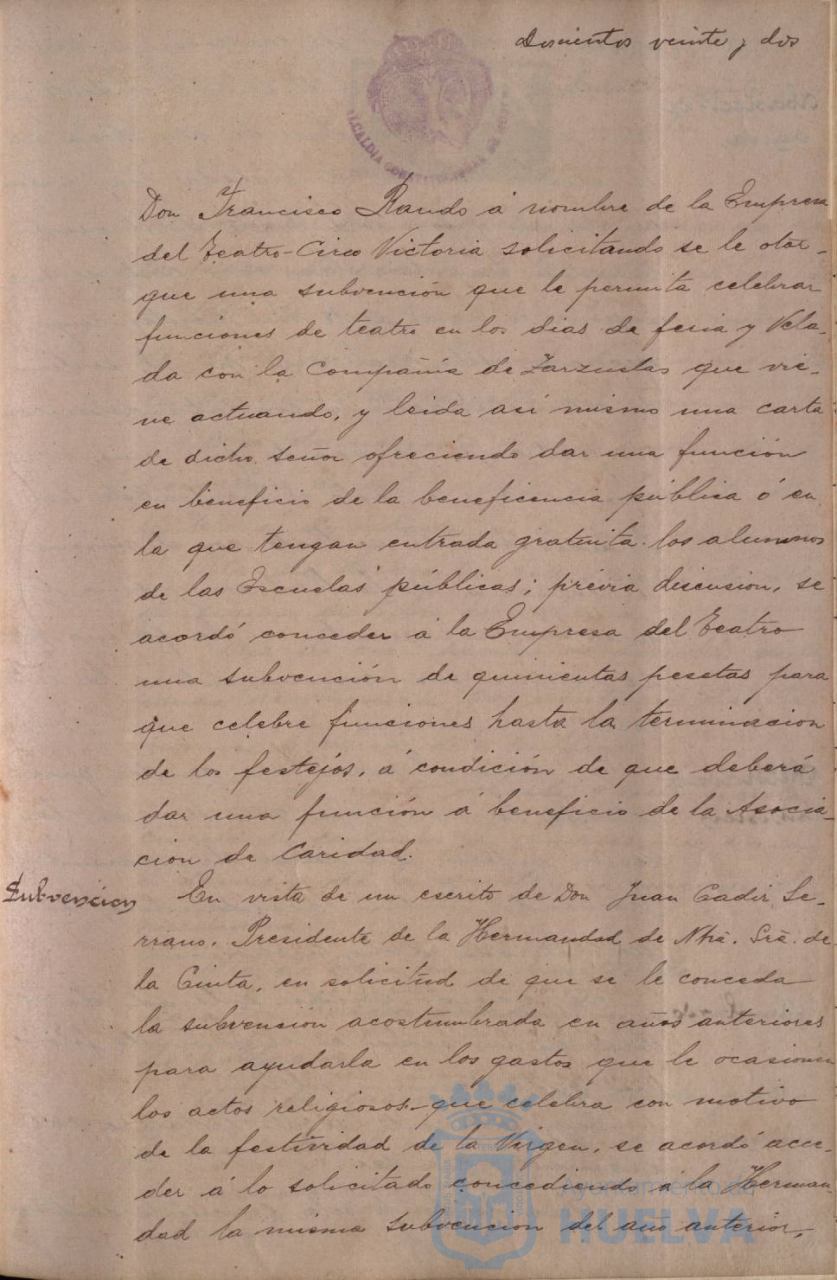 Doscientos veinte y dos
ALCALDIA CONSTITUCIONAL DE
Don Francisco Rando á nombre de la Empresa
del Teatro-Circo Victoria solicitando se le otor-
gue una subvención que le permita celebrar
funciones de teatro en los dias de feria y Vela-
da con la Compañía de Zarzuelas que vie-
ne actuando, y leida asi mismo una carta
de dicho señor ofreciendo dar una función
en beneficio de la beneficencia pública ó en
la que tengan entrada gratuita los alumnos
de las Escuelas públicas; prévia discusion, se
acordó conceder á la Empresa del Teatro
una subvención de quinientas pesetas para
que celebre funciones hasta la terminacion
de los festejos, á condición de que deberá
dar una función á beneficio de la Asocia-
cion de Caridad.
Subvencion
En vista de un escrito de Don Juan Cadir Se-
rrano, Presidente de la Hermandad de Ntrã. Srã. de
la Cinta, en solicitud de que se le conceda
la subvencion acostumbrada en años anteriores
para ayudarla en los gastos que le ocasionen
los actos religiosos que celebra con motivo
de la festividad de la Virgen, se acordó acce-
der á lo solicitado concediendo á la Herman
dad la misma subvencion del año anterior,
Ayuntamiento de
HUELVA